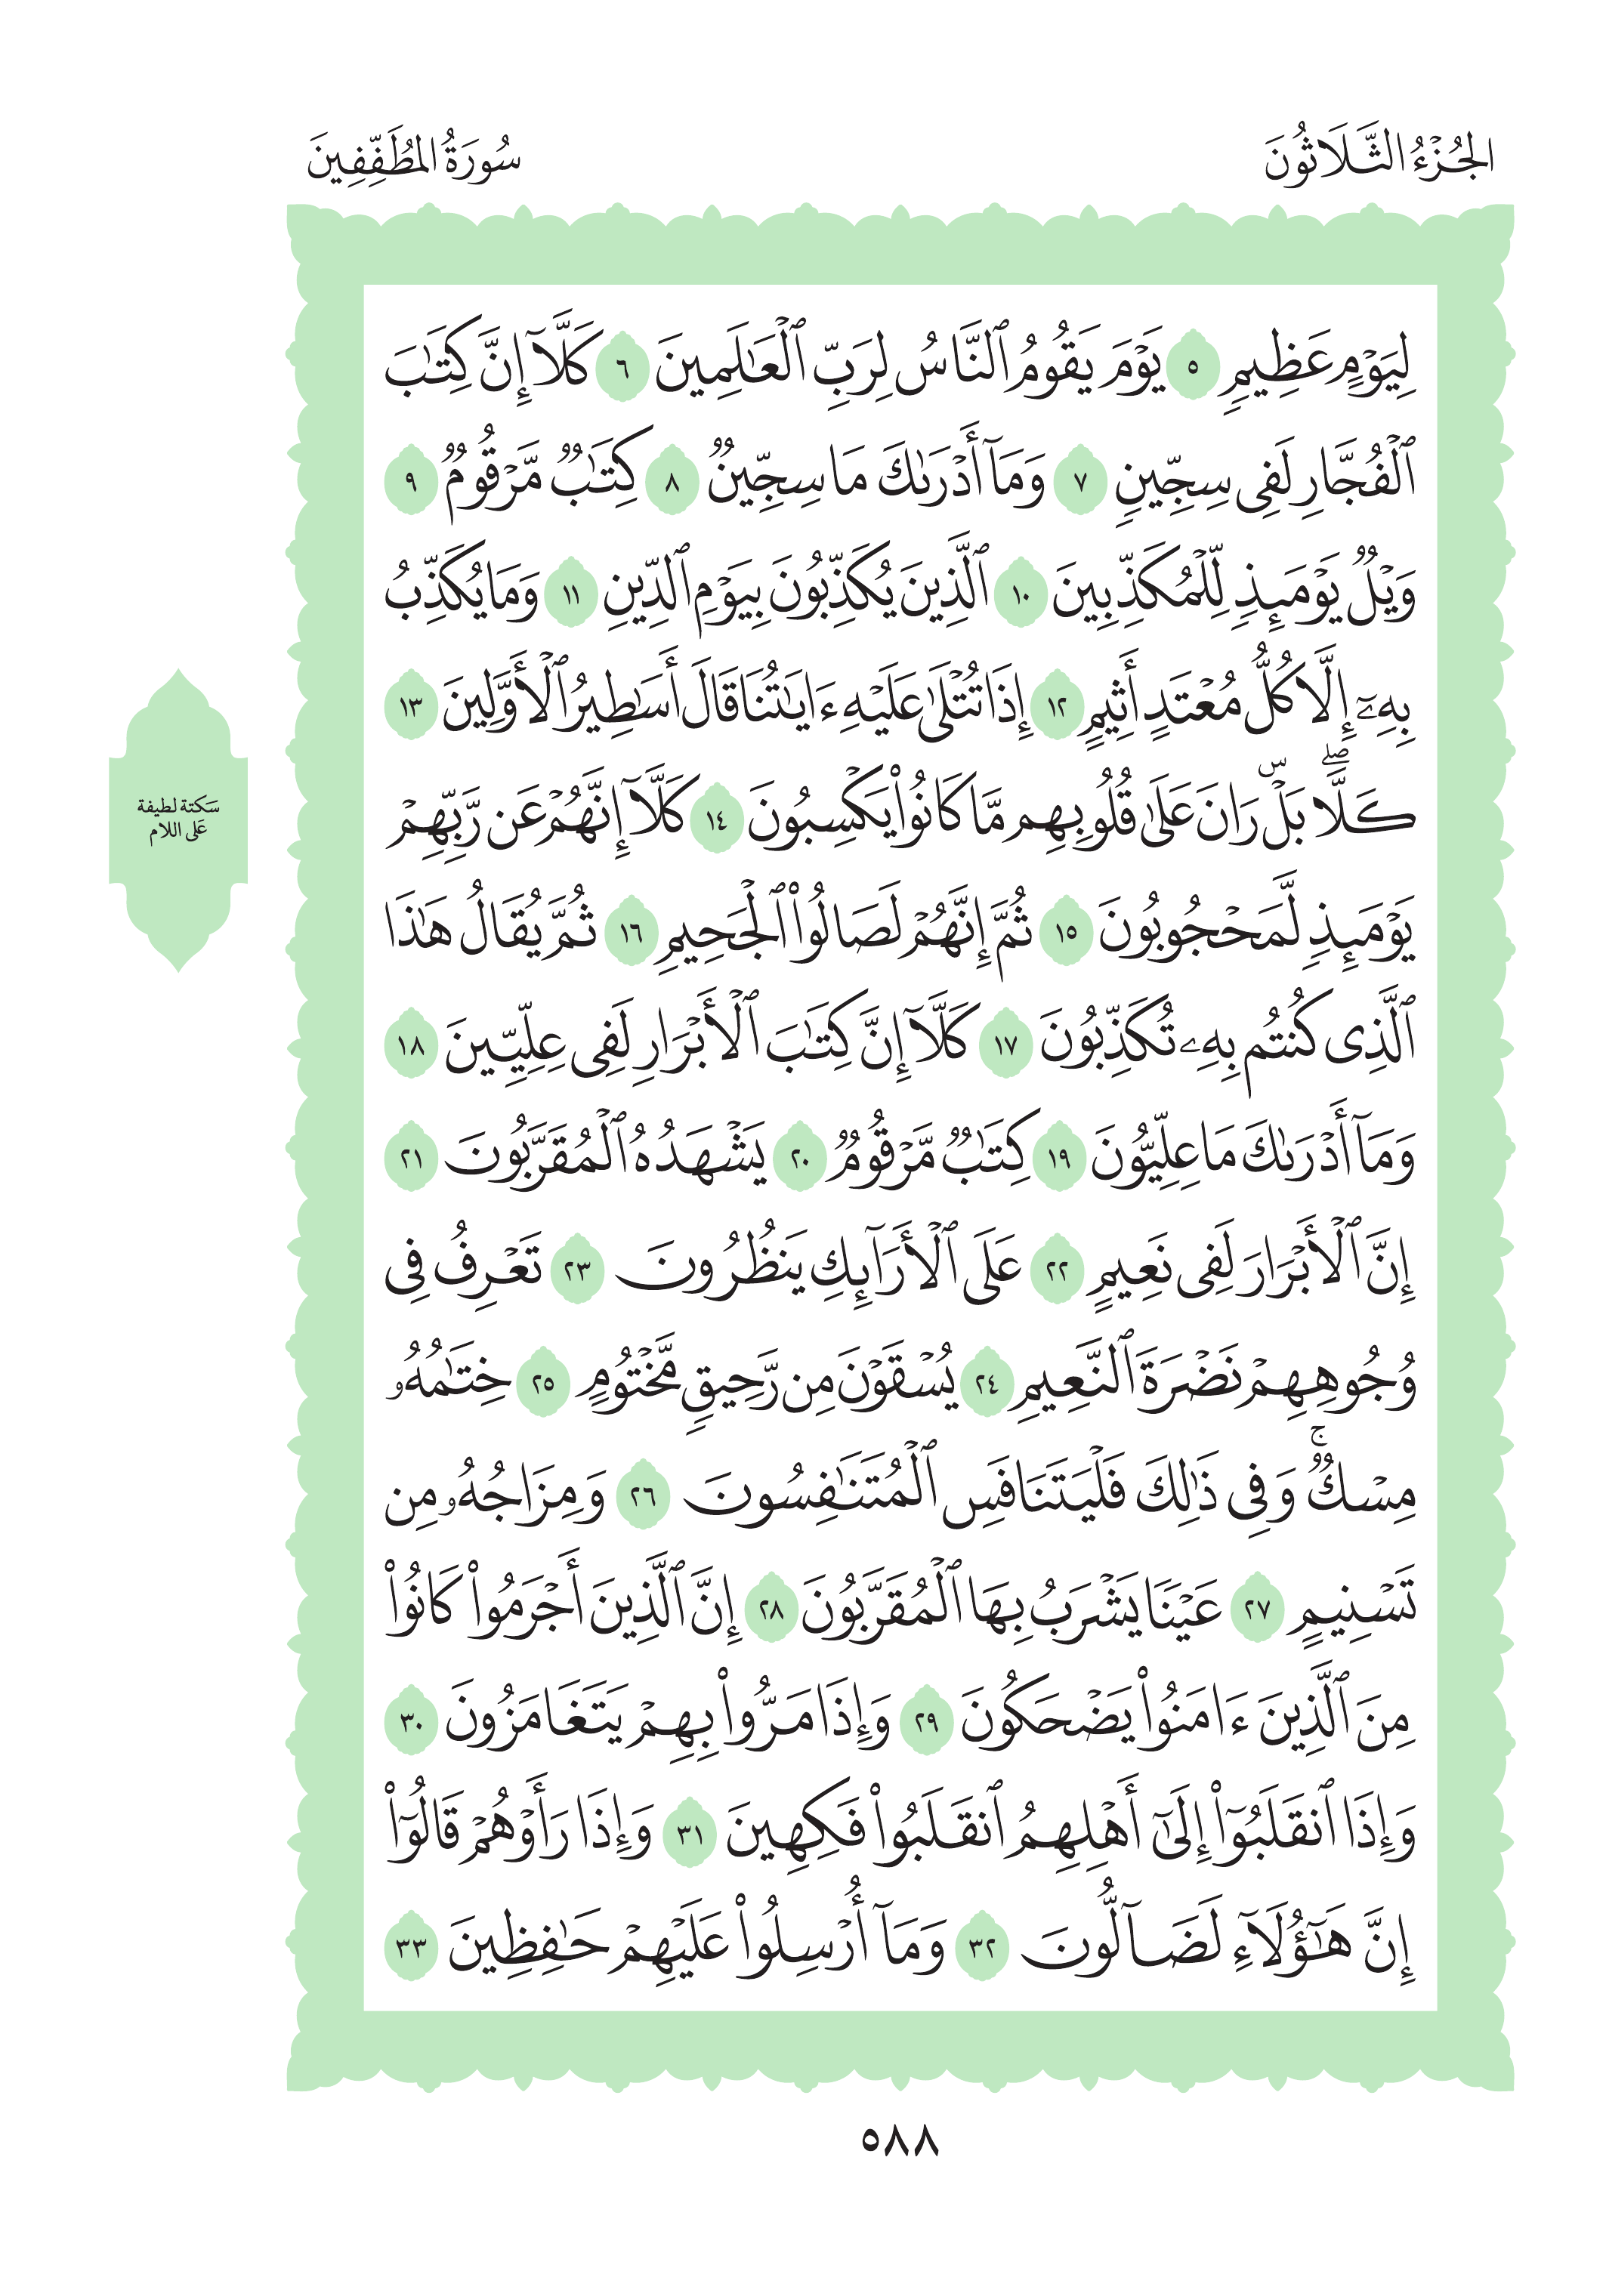 الجُزْءُ الثَّلَاثُونَ
سُورَةُ المُطَفِّفِينَ
لِيَوْمٍ عَظِيمٍ ٥ يَوْمَ يَقُومُ ٱلنَّاسُ لِرَبِّ ٱلْعَـٰلَمِينَ ٦ كَلَّآ إِنَّ كِتَـٰبَ
ٱلْفُجَّارِ لَفِى سِجِّينٍ ٧ وَمَآ أَدْرَىٰكَ مَا سِجِّينٌ ٨ كِتَـٰبٌ مَّرْقُومٌ ٩
وَيْلٌ يَوْمَئِذٍ لِّلْمُكَذِّبِينَ ١٠ ٱلَّذِينَ يُكَذِّبُونَ بِيَوْمِ ٱلدِّينِ ١١ وَمَا يُكَذِّبُ
بِهِۦٓ إِلَّا كُلُّ مُعْتَدٍ أَثِيمٍ ١٢ إِذَا تُتْلَىٰ عَلَيْهِ ءَايَـٰتُنَا قَالَ أَسَـٰطِيرُ ٱلْأَوَّلِينَ ١٣
كَلَّا ۖ بَلْ ۜ رَانَ عَلَىٰ قُلُوبِهِم مَّا كَانُوا۟ يَكْسِبُونَ ١٤ كَلَّآ إِنَّهُمْ عَن رَّبِّهِمْ
يَوْمَئِذٍ لَّمَحْجُوبُونَ ١٥ ثُمَّ إِنَّهُمْ لَصَالُوا۟ ٱلْجَحِيمِ ١٦ ثُمَّ يُقَالُ هَـٰذَا
ٱلَّذِى كُنتُم بِهِۦ تُكَذِّبُونَ ١٧ كَلَّآ إِنَّ كِتَـٰبَ ٱلْأَبْرَارِ لَفِى عِلِّيِّينَ ١٨
وَمَآ أَدْرَىٰكَ مَا عِلِّيُّونَ ١٩ كِتَـٰبٌ مَّرْقُومٌ ٢٠ يَشْهَدُهُ ٱلْمُقَرَّبُونَ ٢١
إِنَّ ٱلْأَبْرَارَ لَفِى نَعِيمٍ ٢٢ عَلَى ٱلْأَرَآئِكِ يَنظُرُونَ ٢٣ تَعْرِفُ فِى
وُجُوهِهِمْ نَضْرَةَ ٱلنَّعِيمِ ٢٤ يُسْقَوْنَ مِن رَّحِيقٍ مَّخْتُومٍ ٢٥ خِتَـٰمُهُۥ
مِسْكٌ ۚ وَفِى ذَٰلِكَ فَلْيَتَنَافَسِ ٱلْمُتَنَـٰفِسُونَ ٢٦ وَمِزَاجُهُۥ مِن
تَسْنِيمٍ ٢٧ عَيْنًا يَشْرَبُ بِهَا ٱلْمُقَرَّبُونَ ٢٨ إِنَّ ٱلَّذِينَ أَجْرَمُوا۟ كَانُوا۟
مِنَ ٱلَّذِينَ ءَامَنُوا۟ يَضْحَكُونَ ٢٩ وَإِذَا مَرُّوا۟ بِهِمْ يَتَغَامَزُونَ ٣٠
وَإِذَا ٱنقَلَبُوٓا۟ إِلَىٰٓ أَهْلِهِمُ ٱنقَلَبُوا۟ فَكِهِينَ ٣١ وَإِذَا رَأَوْهُمْ قَالُوٓا۟
إِنَّ هَـٰٓؤُلَآءِ لَضَآلُّونَ ٣٢ وَمَآ أُرْسِلُوا۟ عَلَيْهِمْ حَـٰفِظِينَ ٣٣
سَكتة لطيفة
عَلى اللام
٥٨٨